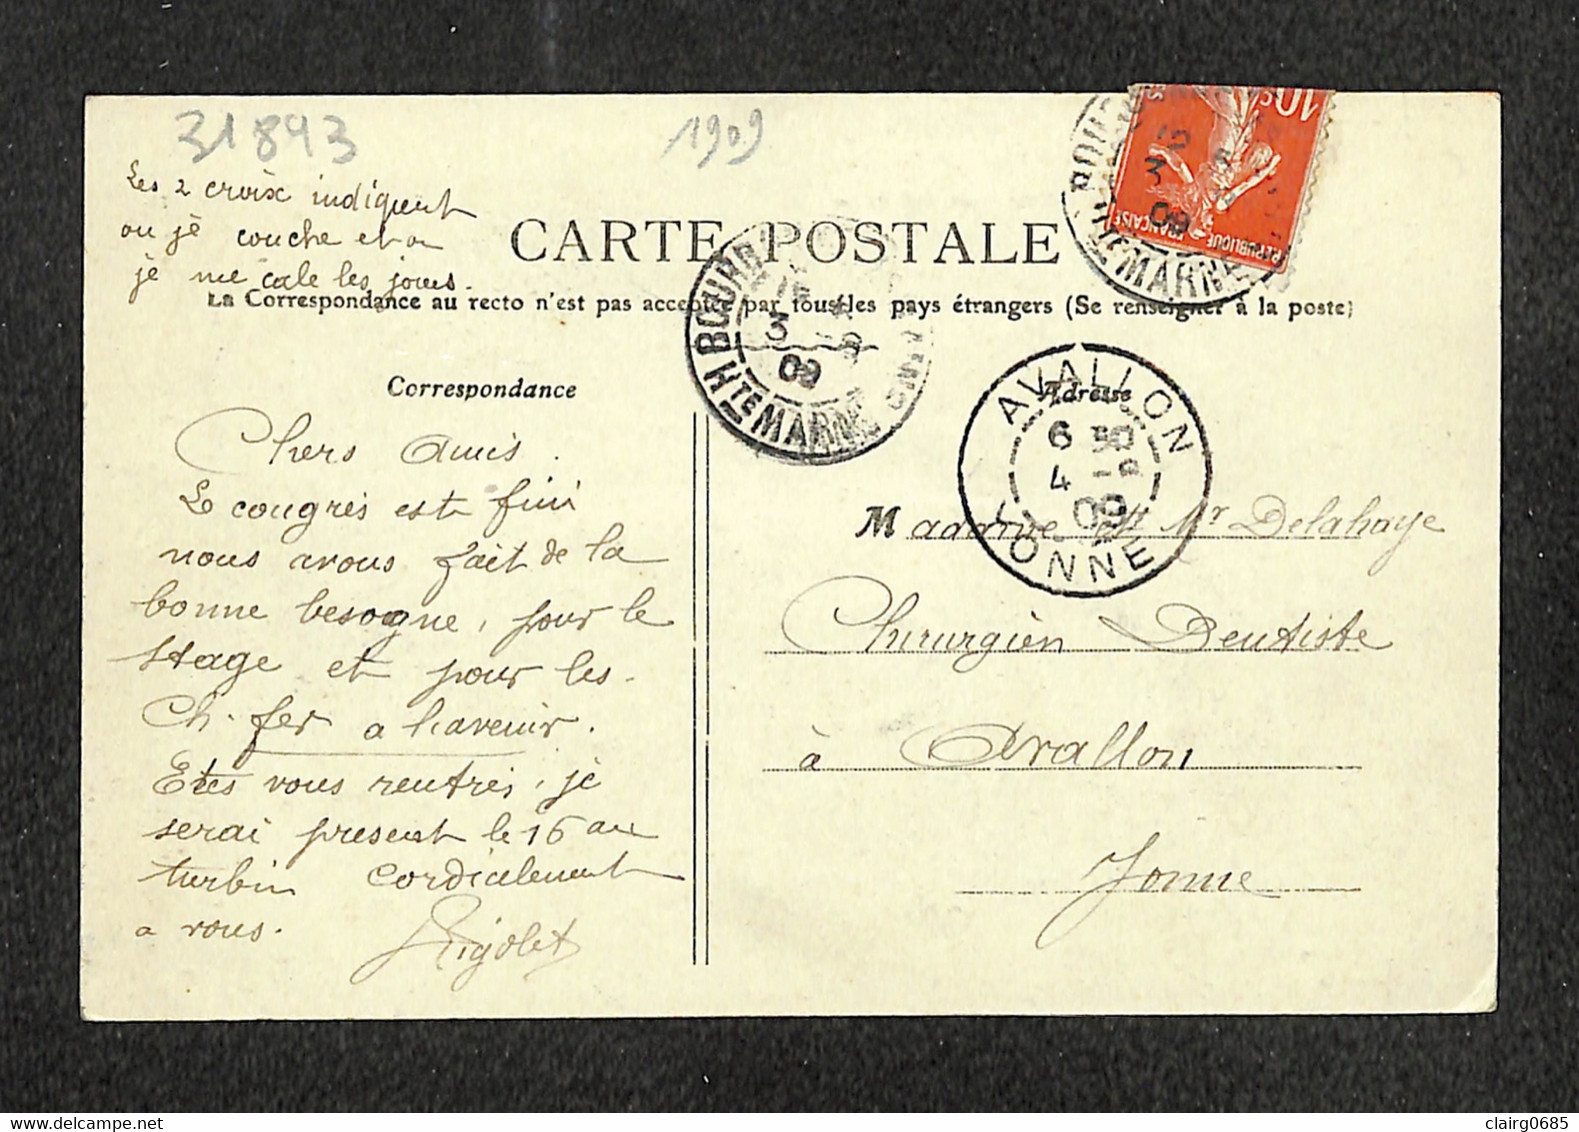 31893
1909
Les 2 croix indiquent
ou je couche et ou
je me cale les joues.
CARTE POSTALE
La Correspondance au recto n'est pas acceptée par tous les pays étrangers (Se renseigner à la poste)
10c
REPUBLIQUE FRANÇAISE
HTE MARNE
BOURB
3
09
HTE MARNE
AVALLON
6
4
09
YONNE
Correspondance
Adresse
Chers Amis.
Le congrès est fini
nous avons fait de la
bonne besogne, pour le
stage et pour les
Ch. fer a l'avenir.
Etes vous rentrés, je
serai présent le 16 au
turbin cordialement
a vous.
Rigolet
Madame et Mr Delahaye
Chirurgien Dentiste
à Avallon
Yonne
clairg0685